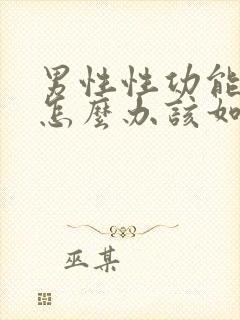 男性性功能
怎麼办該如
巫某